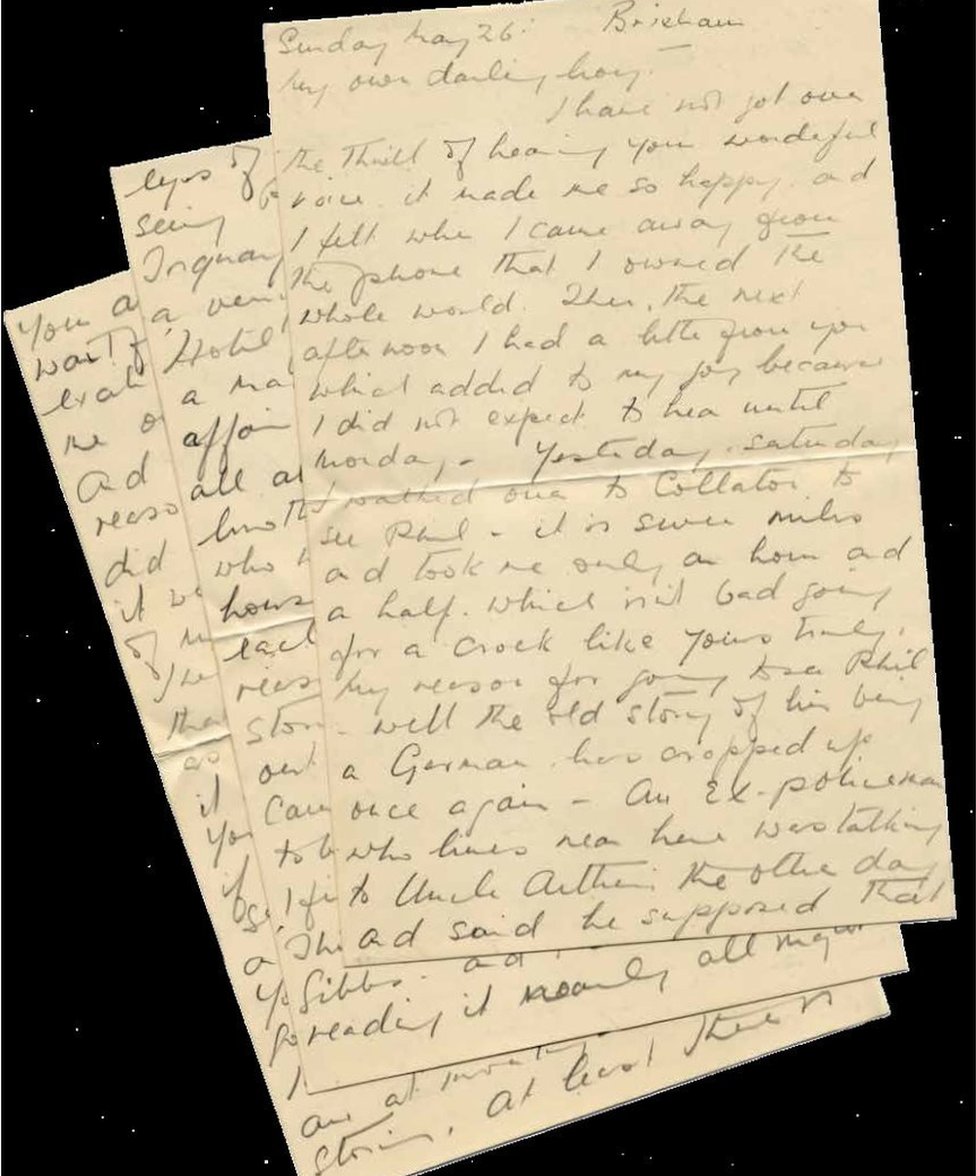 Sunday May 26. Brixham
My own darling boy.
I have not got over
the thrill of hearing your wonderful
voice. it made me so happy. and
I felt when I came away from
the phone that I owned the
whole world. Then, the next
afternoon I had a letter from you
which added to my joy because
I did not expect to hear until
Monday. - Yesterday. Saturday
I walked over to Collaton to
see Phil - it is seven miles
and took me only an hour and
a half. which isn't bad going
for a crock like yours truly.
My reason for going to see Phil
- well the old story of his being
a German has cropped up
once again - An Ex-policeman
who lives near here was talking
to Uncle Arthur the other day
and said he supposed that
eyes of
seeing
Torquay
a very
Hotel
a ma
affair
all a
who
house
each
reas
stor
out
came
to b
I fi
The
Gibbs. and
reading it nearly all night
You a
wait f
exa
me o
and
reaso
did
it we
of m
The
tha
as
it
You
if
a
Yo
I
are at
Stories, at least there is